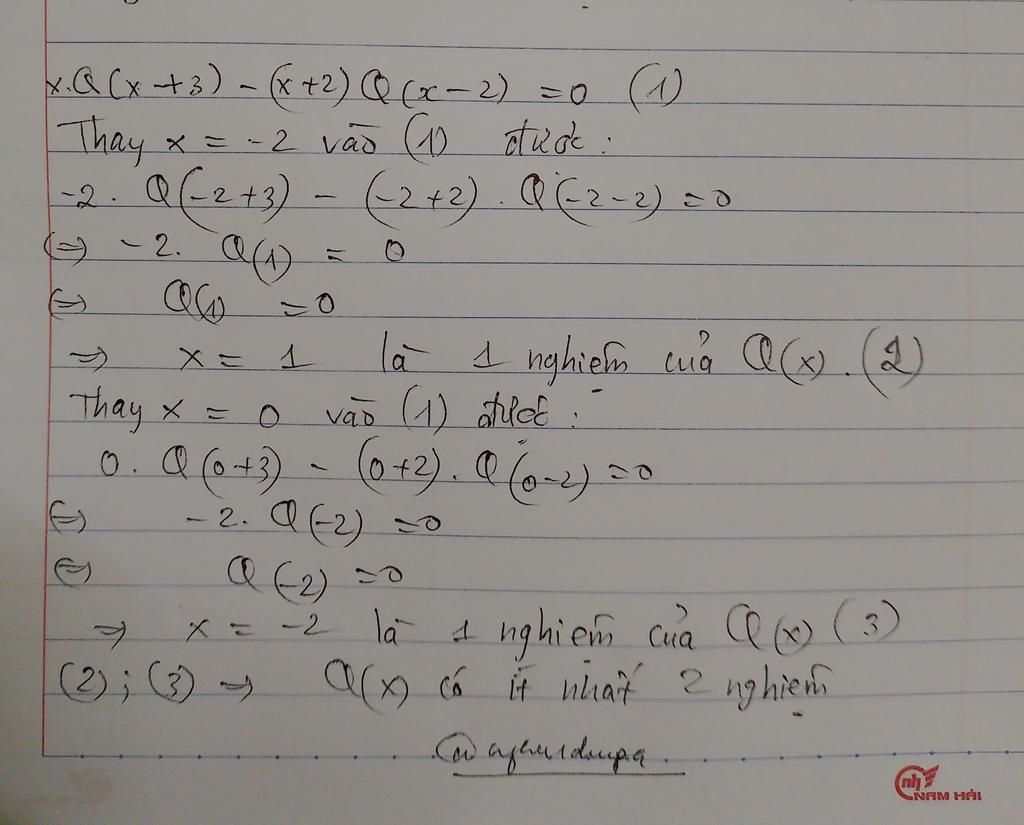 x.Q(x+3) - (x+2) Q(x-2) = 0 (1)
Thay x = -2 vào (1) được:
-2. Q(-2+3) - (-2+2). Q(-2-2) = 0
(=) -2. Q(1) = 0
(=) Q(1) = 0
=> x = 1 là 1 nghiệm của Q(x). (2)
Thay x = 0 vào (1) được:
0. Q(0+3) - (0+2). Q(0-2) = 0
(=) -2. Q(-2) = 0
(=) Q(-2) = 0
=> x = -2 là 1 nghiệm của Q(x) (3)
(2); (3) => Q(x) có ít nhất 2 nghiệm
nh NAM HẢI